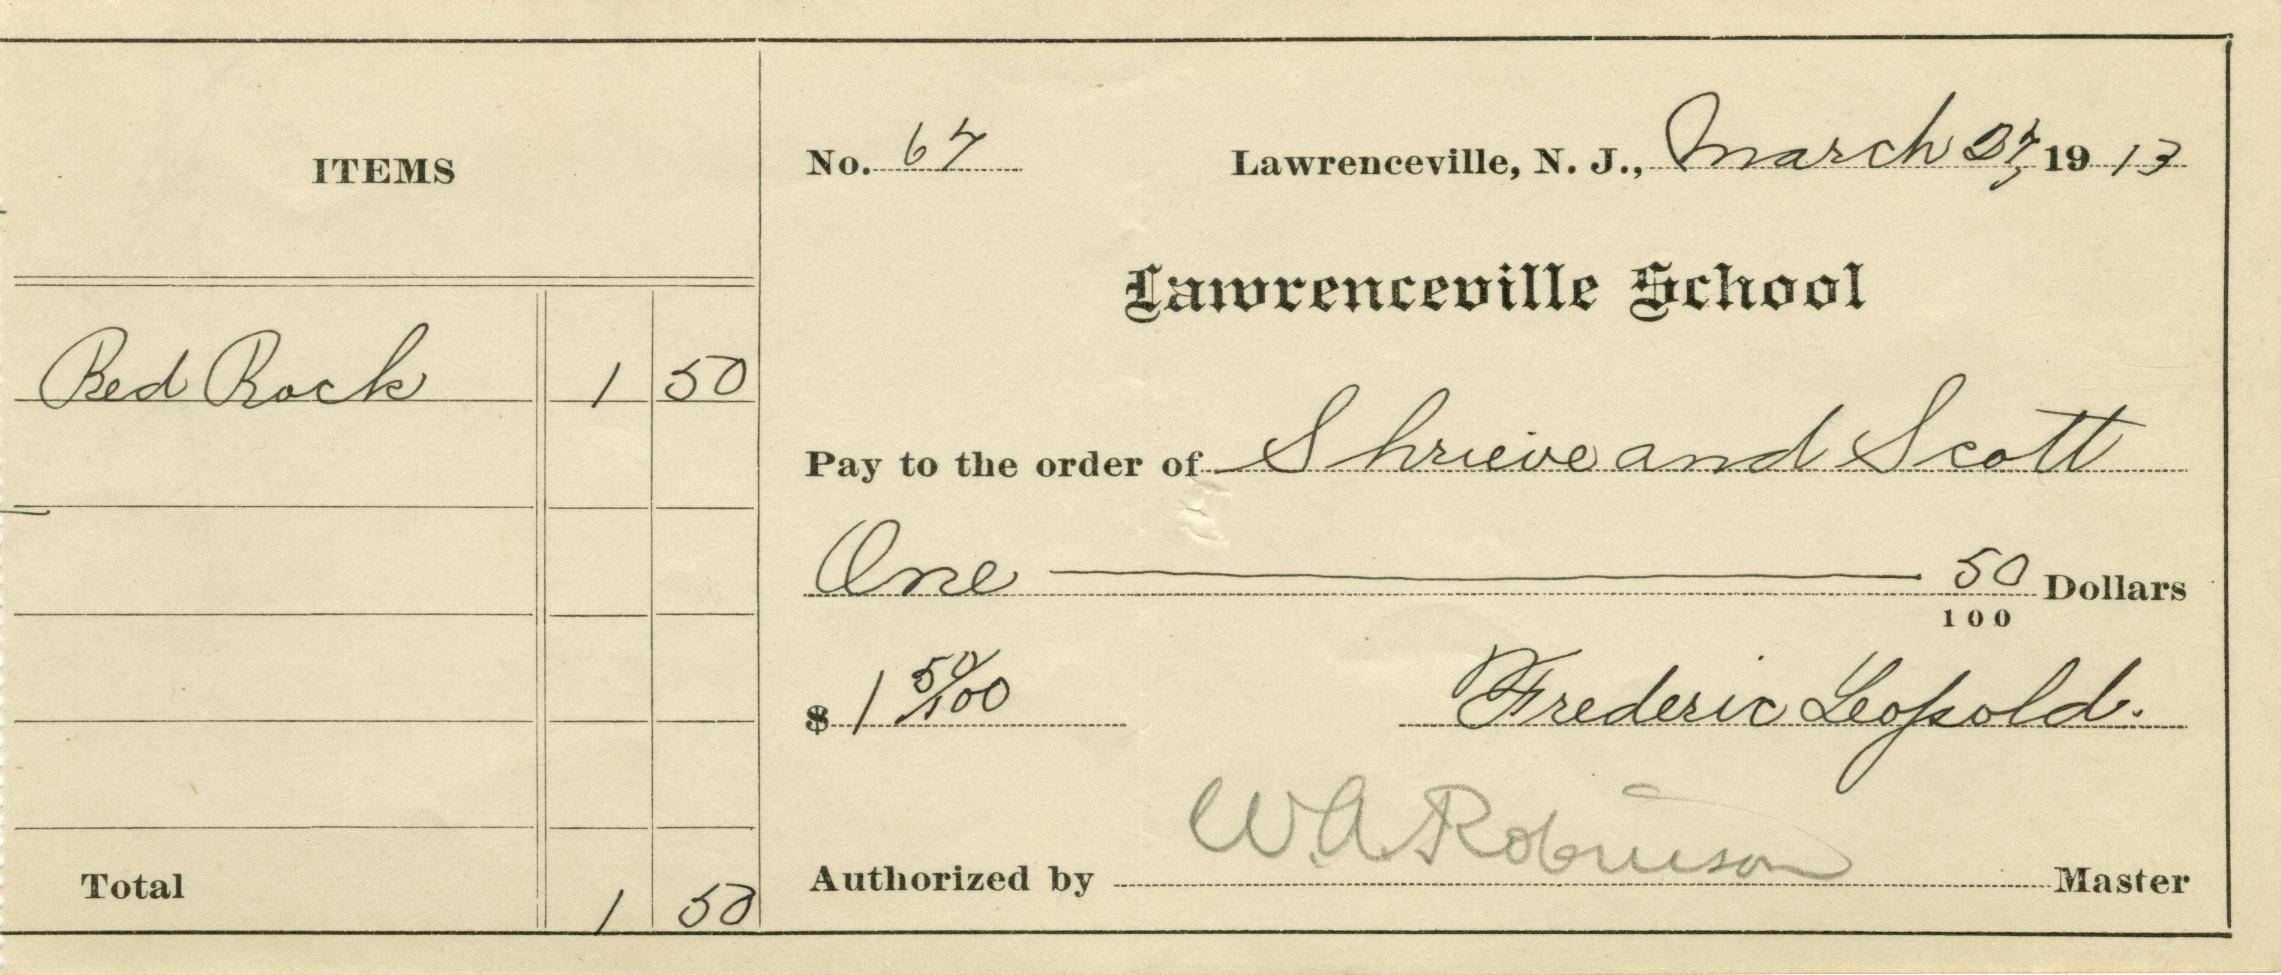 ITEMS
Red Rock 1 50
Total 1 50
No. 67 Lawrenceville, N. J., March 27, 1913
Lawrenceville School
Pay to the order of Shrieve and Scott
One 50/100 Dollars
$ 1 50/100 Frederic Leopold.
Authorized by W.A. Robinson Master